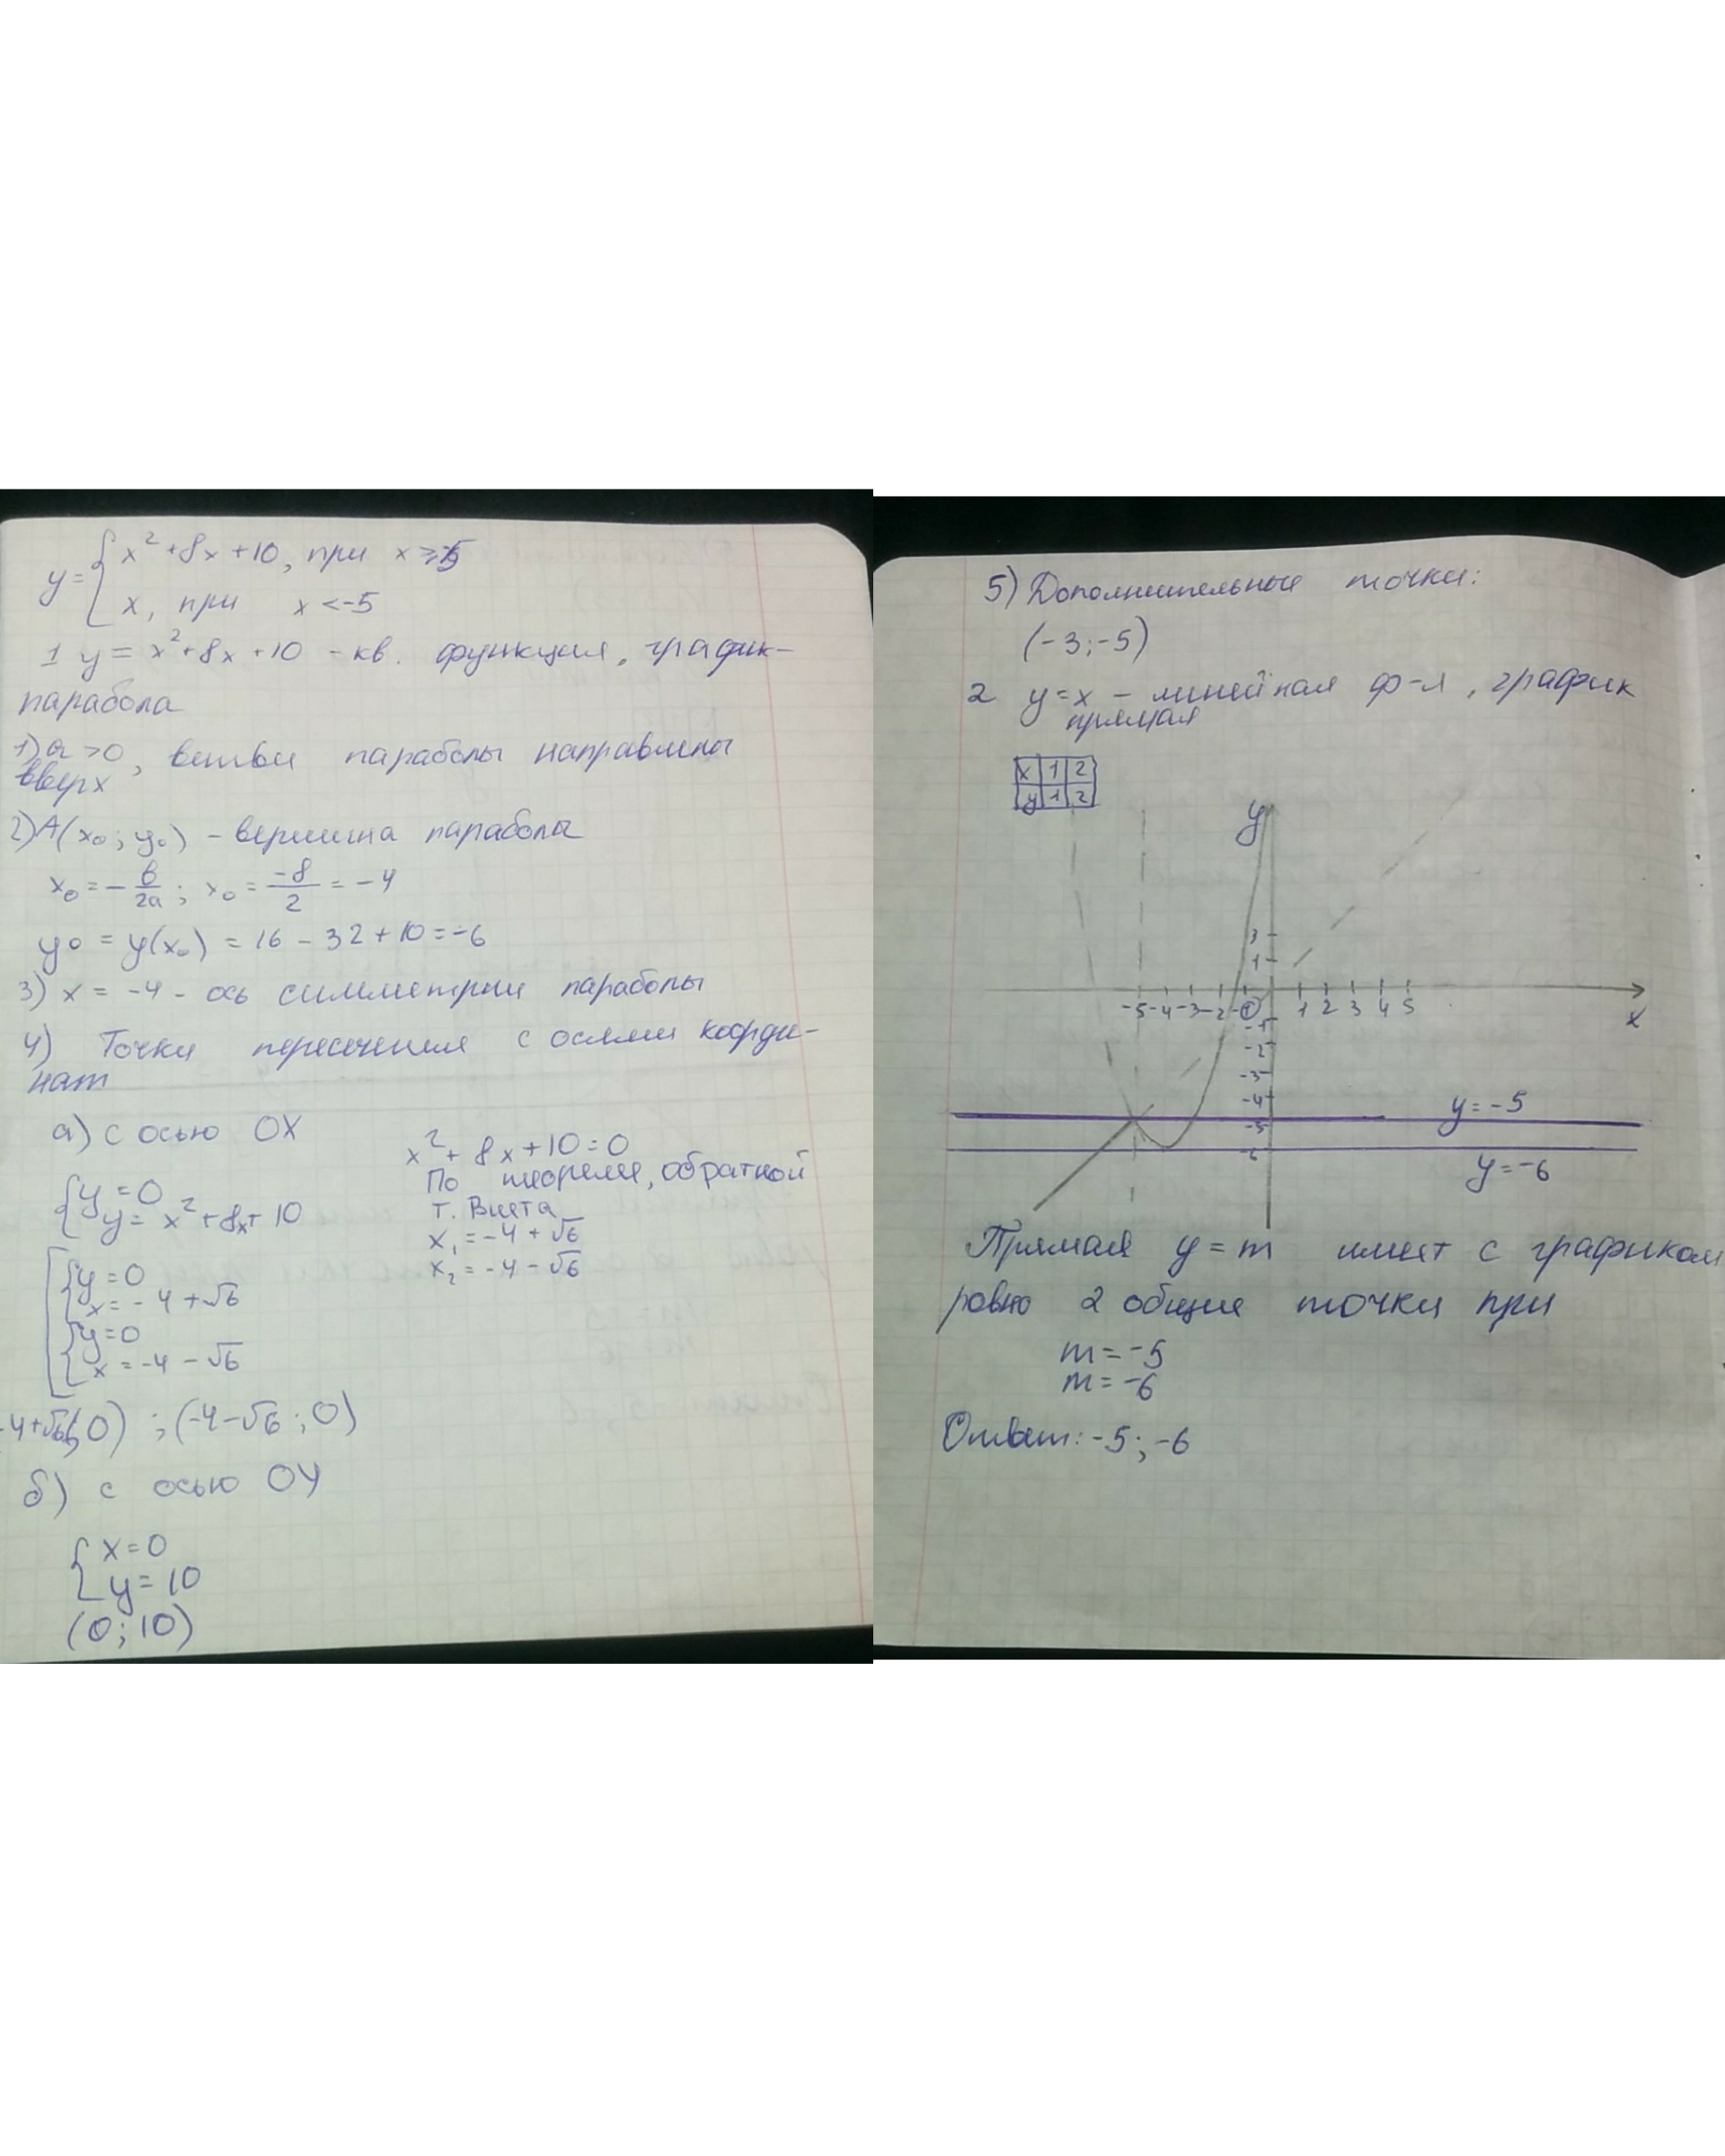 y = { x² + 8x + 10, при x ≥ -5
x, при x < -5
1 y = x² + 8x + 10 - кв. функция, график-
парабола
1) a > 0, ветви параболы направлены
вверх
2) A(x₀; y₀) - вершина параболы
x₀ = - b/2a ; x₀ = -8/2 = -4
y₀ = y(x₀) = 16 - 32 + 10 = -6
3) x = -4 - ось симметрии параболы
4) Точки пересечения с осями коорди-
нат
а) с осью OX
{ y = 0
y = x² + 8x + 10
[ { y = 0
x = -4 + √6
{ y = 0
x = -4 - √6
-4+√6; 0) ; (-4-√6 ; 0)
x² + 8x + 10 = 0
По теореме, обратной
т. Виета
x₁ = -4 + √6
x₂ = -4 - √6
б) с осью OY
{ x = 0
y = 10
(0; 10)
5) Дополнительные точки:
(-3; -5)
2 y = x - линейная ф-я, график
прямая
x 1 2
y 1 2
y
3
1
-5 -4 -3 -2 -1 0 1 2 3 4 5
x
-1
-2
-3
-4
-5
-6
y = -5
y = -6
Прямая y = m имеет с графиком
ровно 2 общие точки при
m = -5
m = -6
Ответ: -5; -6